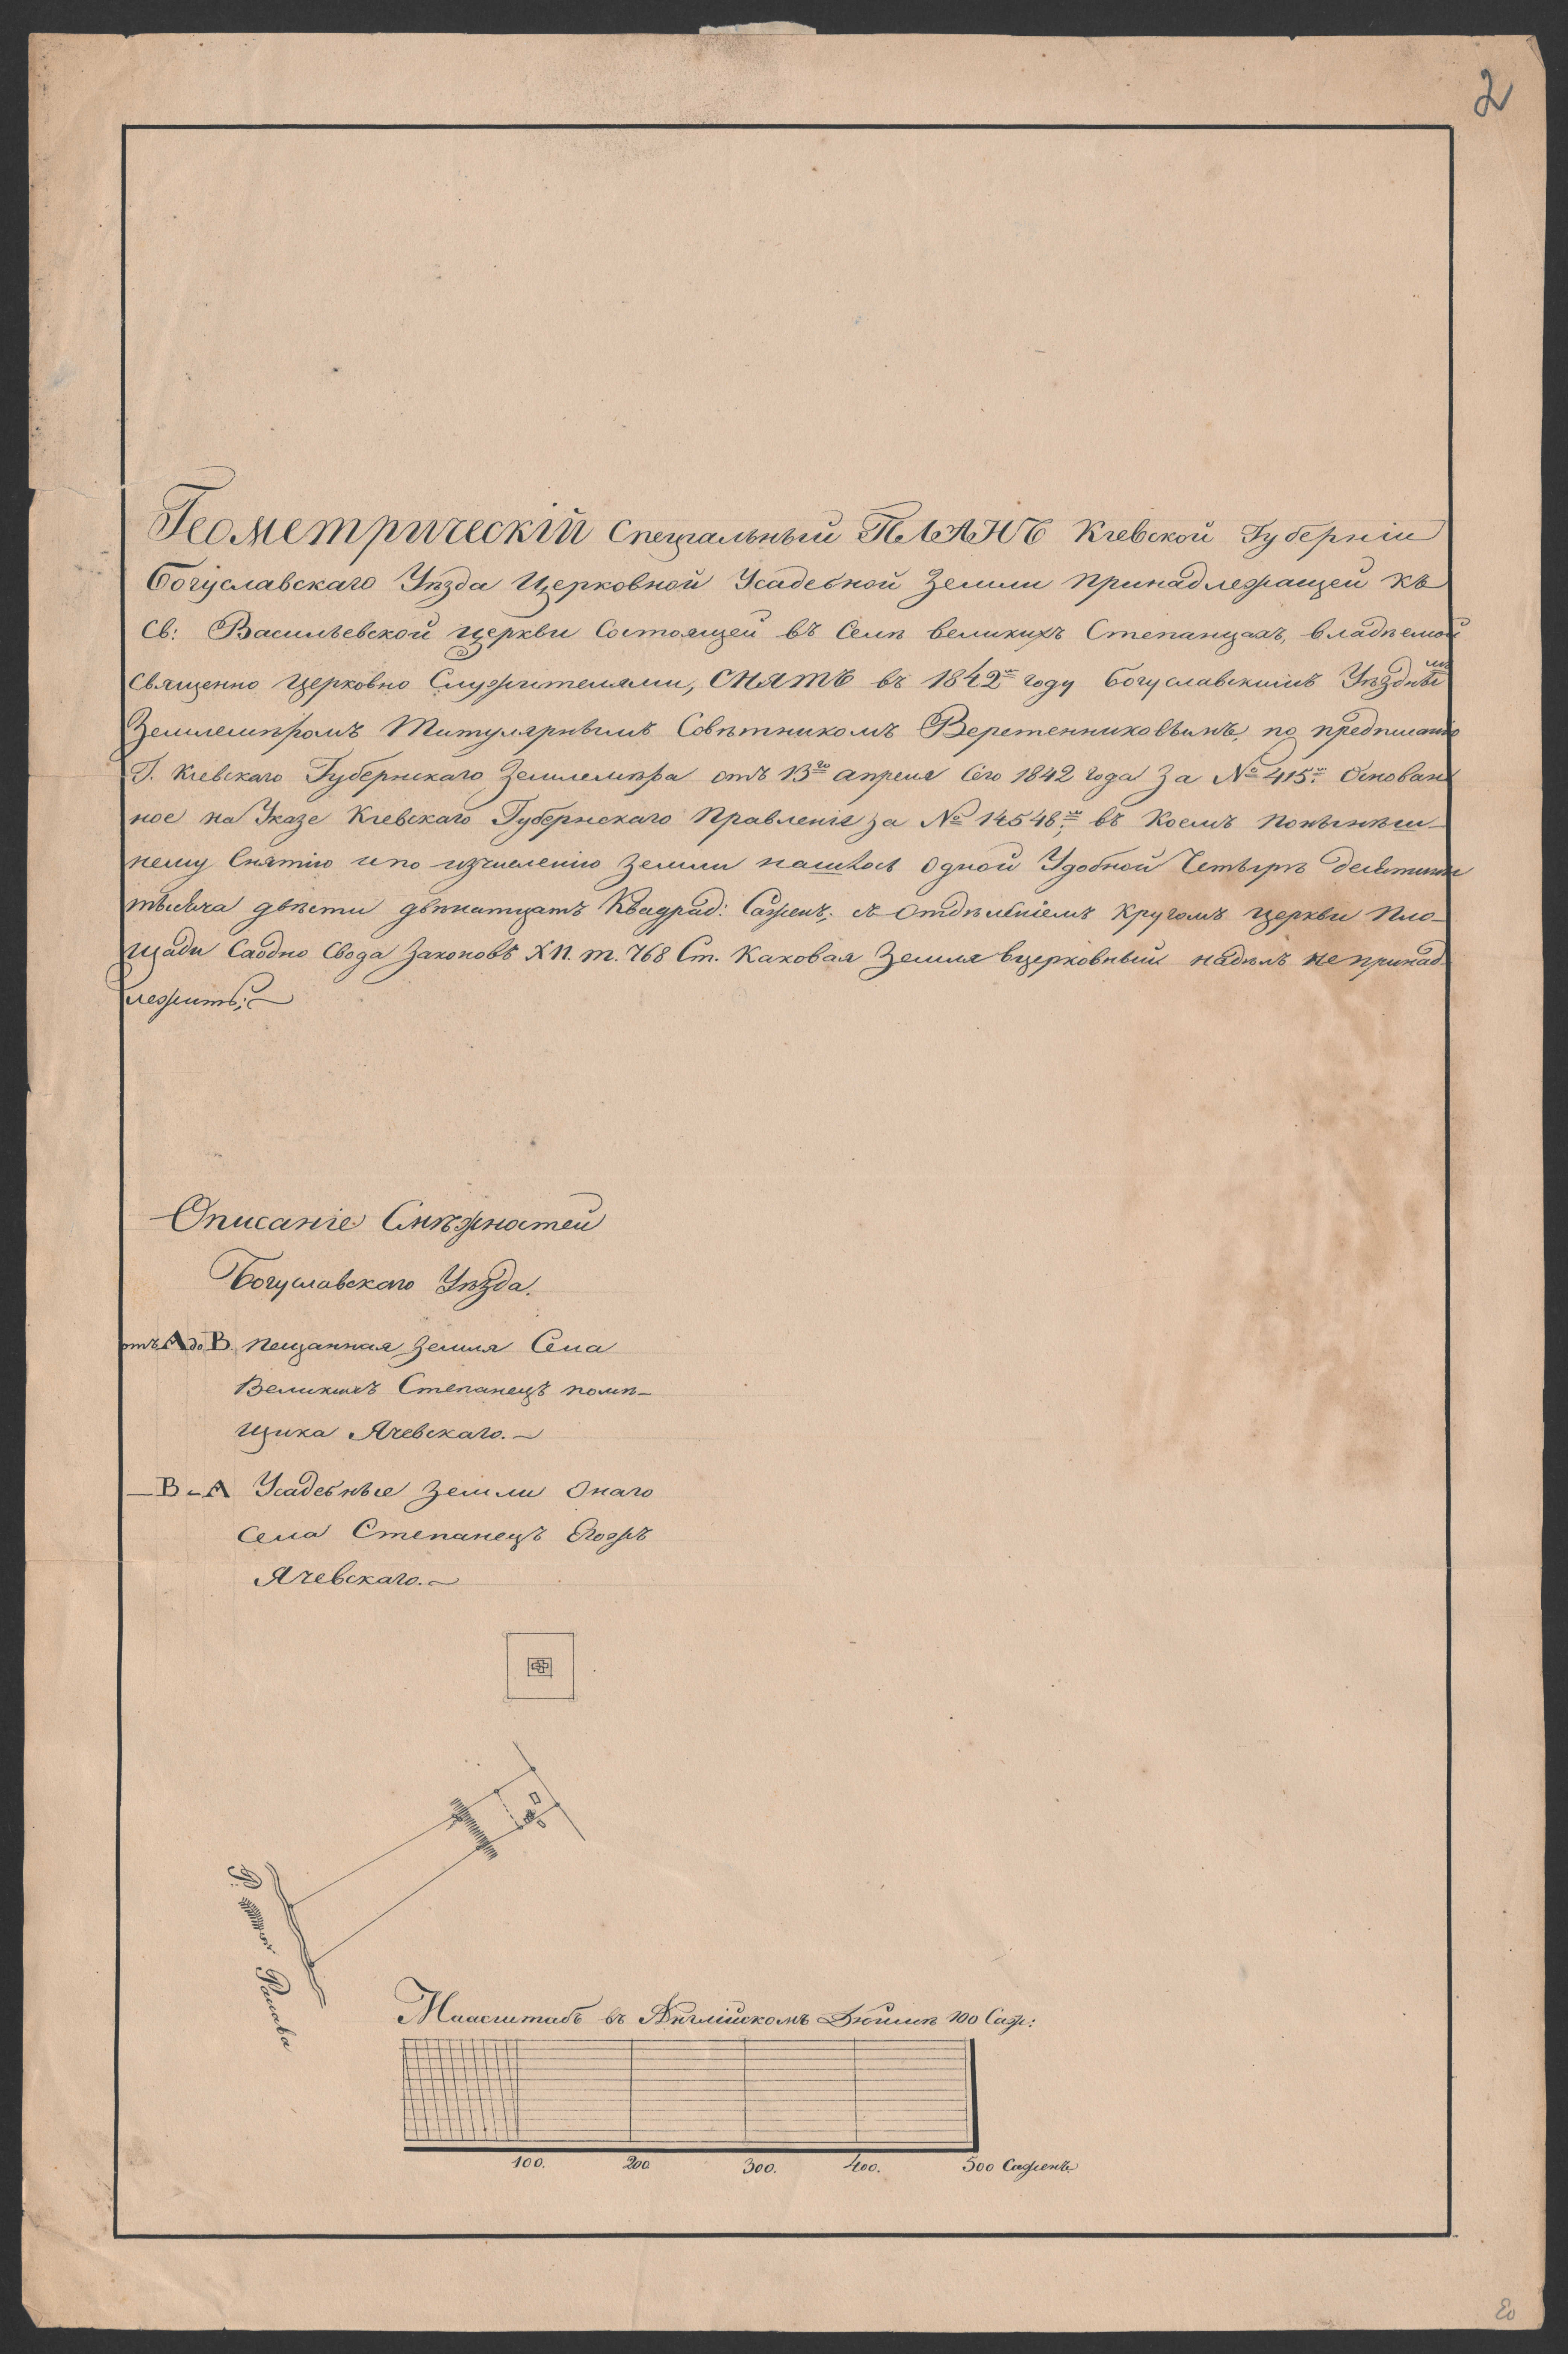 2
Геометрическій Спеціальный ПЛАНЪ Кіевской Губерніи
Богуславскаго Уѣзда Церковной Усадебной Земли принадлежащей къ
Св: Васильевской церкви Состоящей въ Селѣ великихъ Степанцахъ, владѣемой
Священно Церковно Служителями, СНЯТЪ въ 1842мъ году Богуславскимъ Уѣзднымъ
Землемѣромъ Титулярнымъ Совѣтникомъ Веретенниковымъ, по предписанію
Г. Кіевскаго Губернскаго Землемѣра отъ 13го апреля Сего 1842 года За № 415м. Основан
ное на Указе Кіевскаго Губернскаго Правленіе за № 14548м; въ Коемъ понынѣш-
нему Снятію и по изчисленію Земли нашлось Одной Удобной Четырѣ десятины
тысеча двѣсти двѣнатцать Квадрад: Саженъ; съ Отдѣленіемъ Кругомъ церкви Пло-
щади Саодно Свода Законовъ Х п. т. 768 Ст. Каковая Земля вцерковный надѣлъ не принад-
лежитъ;
Описаніе Смѣжностей
Богуславскаго Уѣзда.
отъ А до В. Пещанная Земля Села
Великихъ Степанецъ помѣ-
щика Ячевскаго.
— В - А Усадебные Земли Онаго
Села Степанецъ Егожъ
Ячевскаго.
Р. Росава
Маасштабъ въ Англійскомъ Дюймѣ 100 Саж:
100. 200 300. 400. 500 Саженъ
20